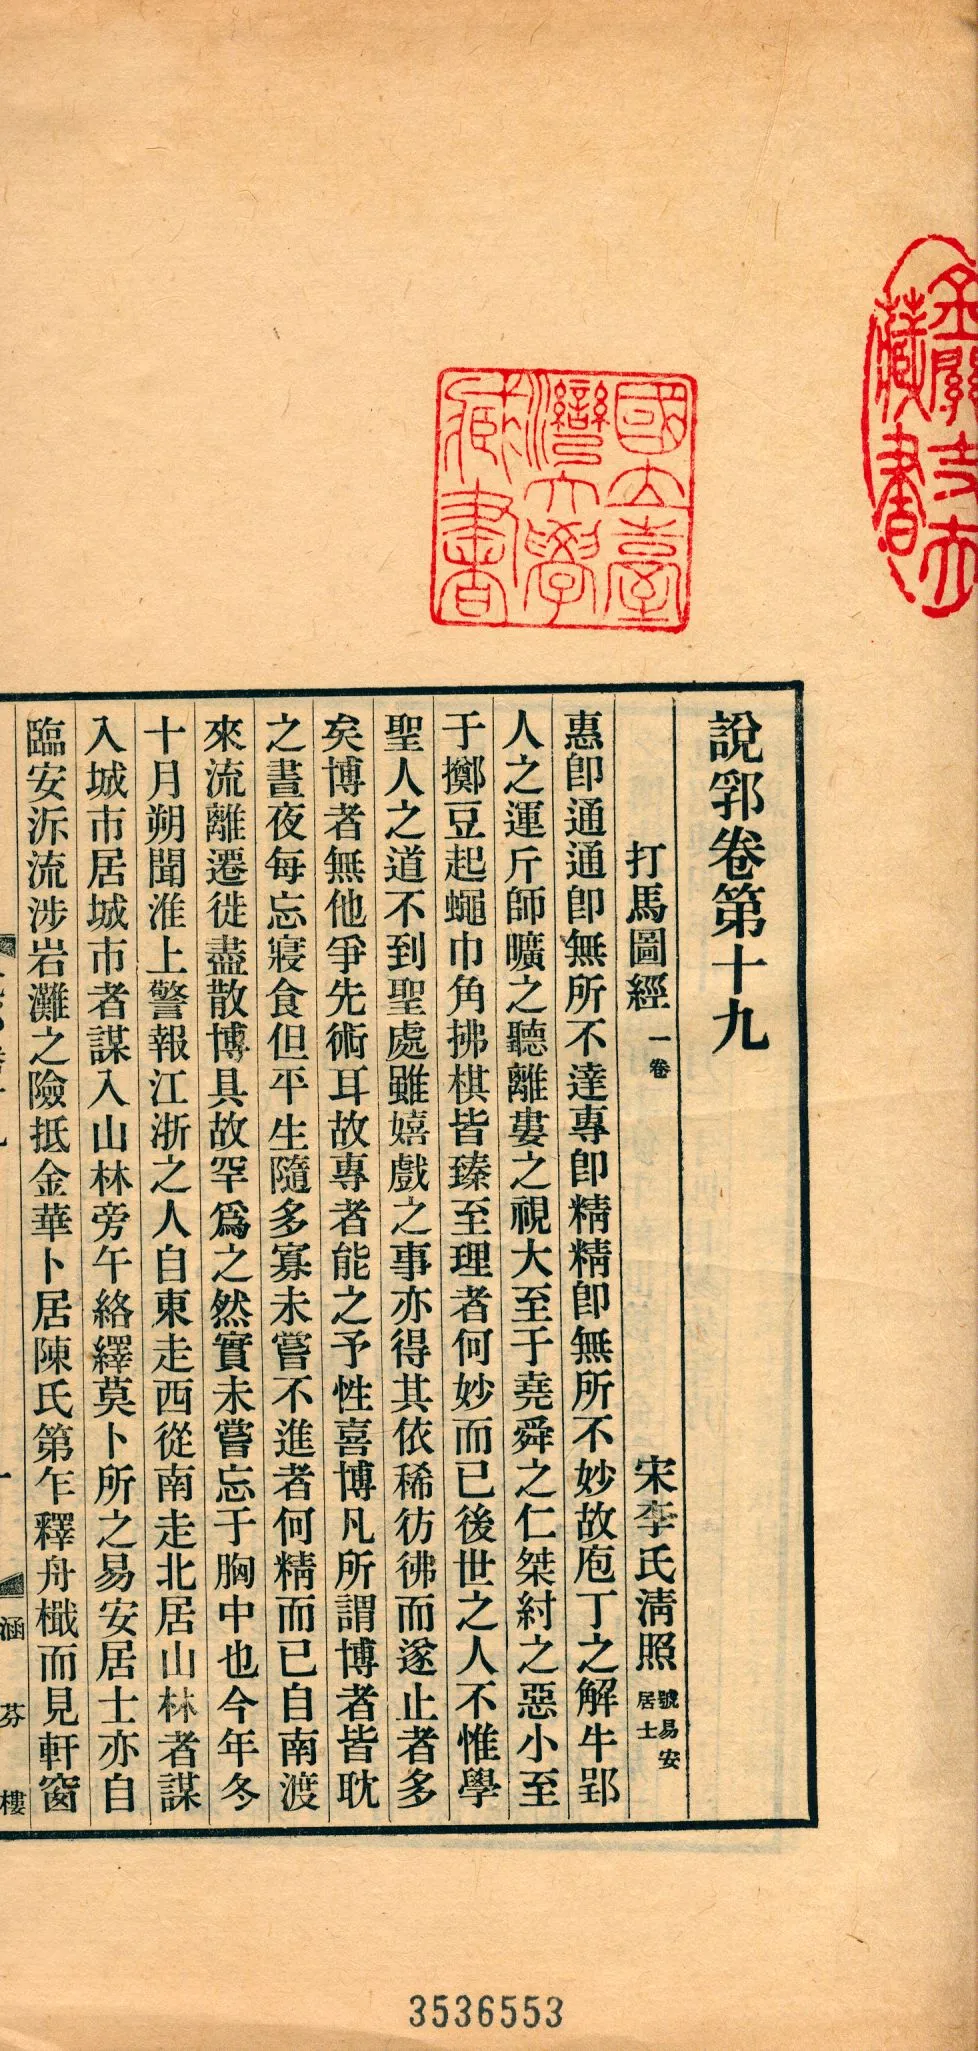 說郛卷第十九
打馬圖經 一卷 宋李氏清照 號易安居士
惠卽通通卽無所不達專卽精精卽無所不妙故庖丁之解牛郢
人之運斤師曠之聽離婁之視大至于堯舜之仁桀紂之惡小至
于擲豆起蠅巾角拂棋皆臻至理者何妙而已後世之人不惟學
聖人之道不到聖處雖嬉戲之事亦得其依稀彷彿而遂止者多
矣博者無他爭先術耳故專者能之予性喜博凡所謂博者皆耽
之晝夜每忘寢食但平生隨多寡未嘗不進者何精而已自南渡
來流離遷徙盡散博具故罕爲之然實未嘗忘于胸中也今年冬
十月朔聞淮上警報江浙之人自東走西從南走北居山林者謀
入城市居城市者謀入山林旁午絡繹莫卜所之易安居士亦自
臨安泝流涉岩灘之險抵金華卜居陳氏第乍釋舟檝而見軒窗
涵芬樓
國立臺灣大學藏書
3536553